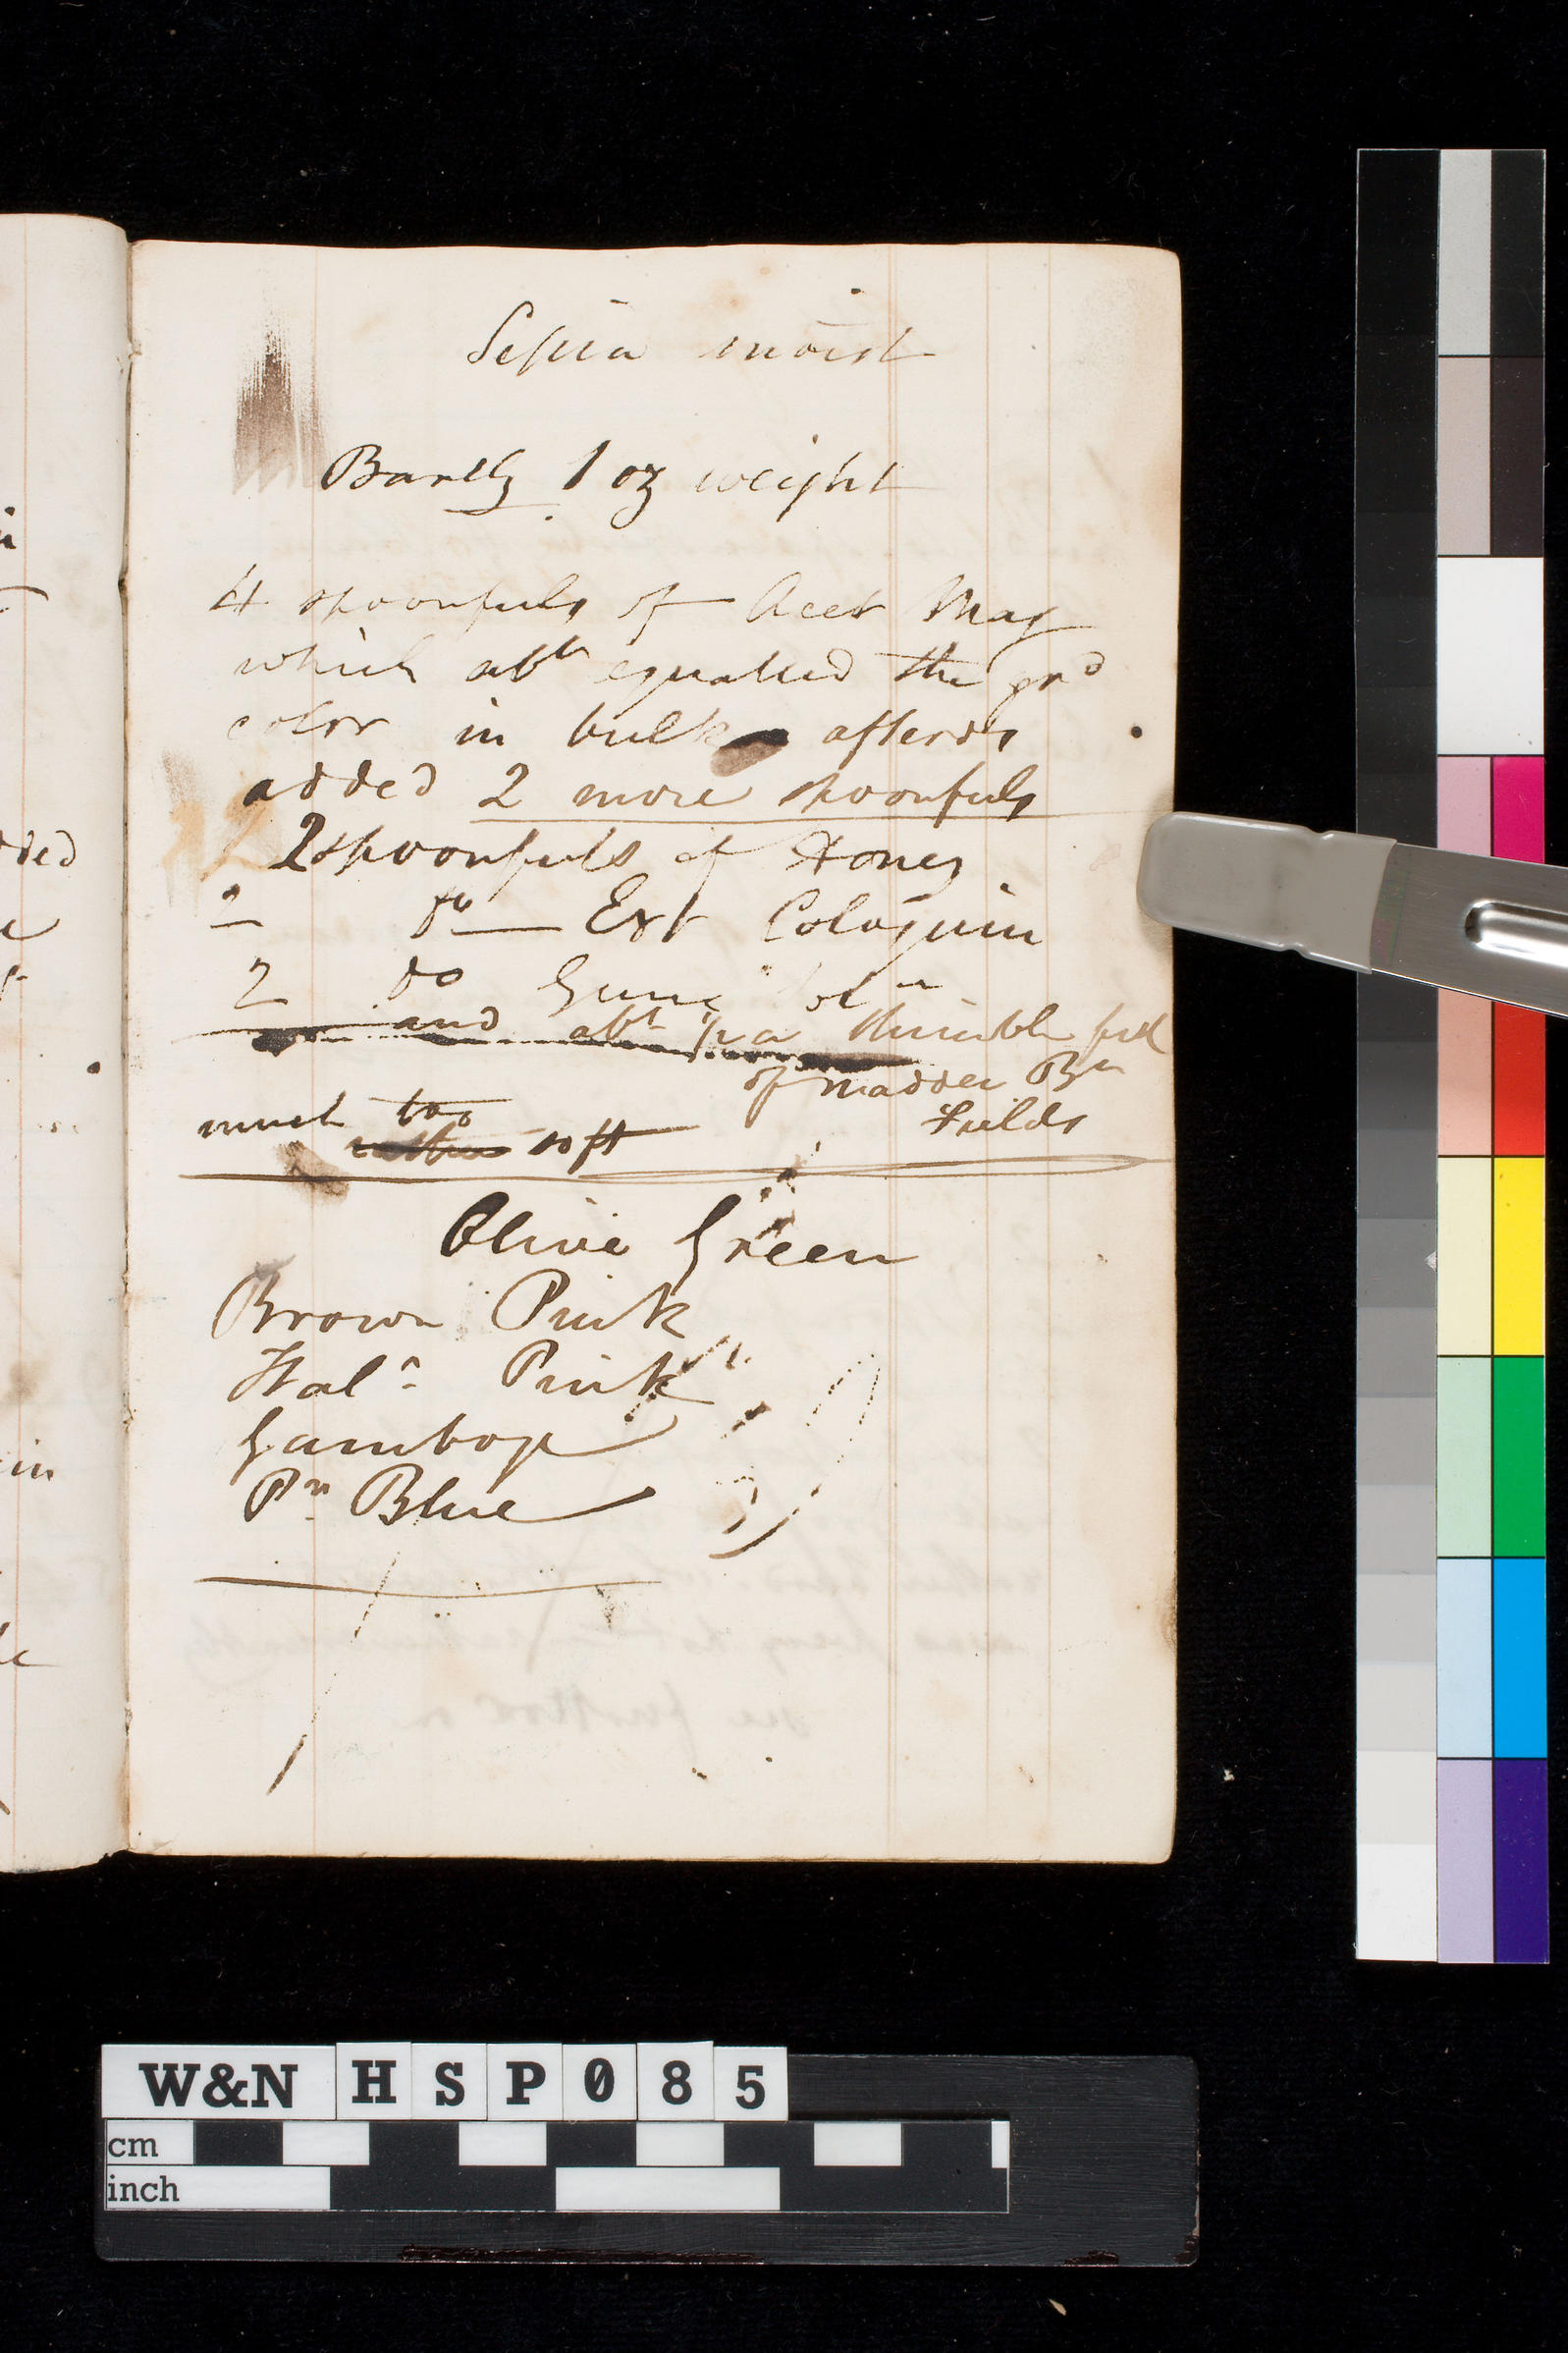 Sepia moist
Barely 1 oz weight
4 spoonfuls of Acet Mag
which abt equalled the grd
color in bulk afterds
added 2 more spoonfuls
2 spoonfuls of Honey
2 do Ext Coloquin
2 do Gum Soln
and abt 1/2 a thimble full
of Madder Bn
Fields
much too
rather soft
Olive Green
Brown Pink
Italn Pink
Gamboge
Pn Blue
ded
in
W&N HSP085
cm
inch